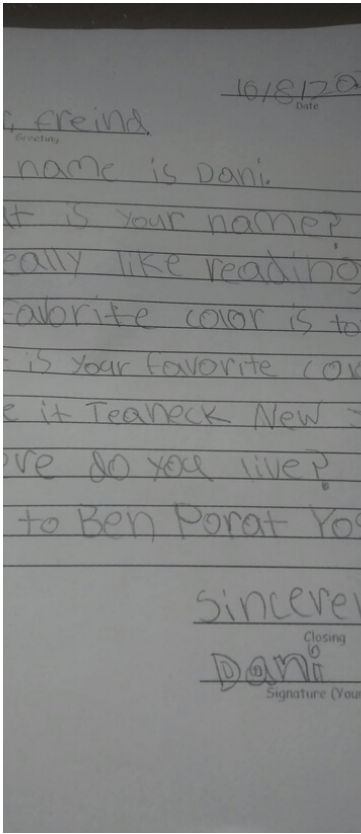 10/8/20
Date
freind
Greeting
name is Dani.
is your name?
eally like reading
favorite color is to
is your favorite co
it Teaneck New
do you live?
to Ben Porat Yo
Sincerel
Closing
Dani
Signature (Your